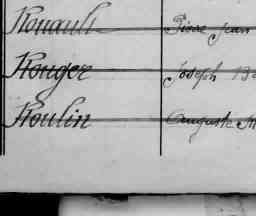 Rouault Pierre Jean
Rouger Joseph
Roulin Auguste